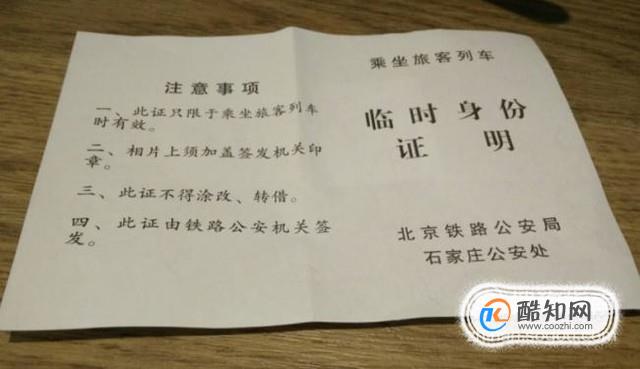 注意事项
一、此证只限于乘坐旅客列车
时有效。
二、相片上须加盖签发机关印
章。
三、此证不得涂改、转借。
四、此证由铁路公安机关签
发。
乘坐旅客列车
临时身份
证明
北京铁路公安局
石家庄公安处
酷知网
www.coozhi.com